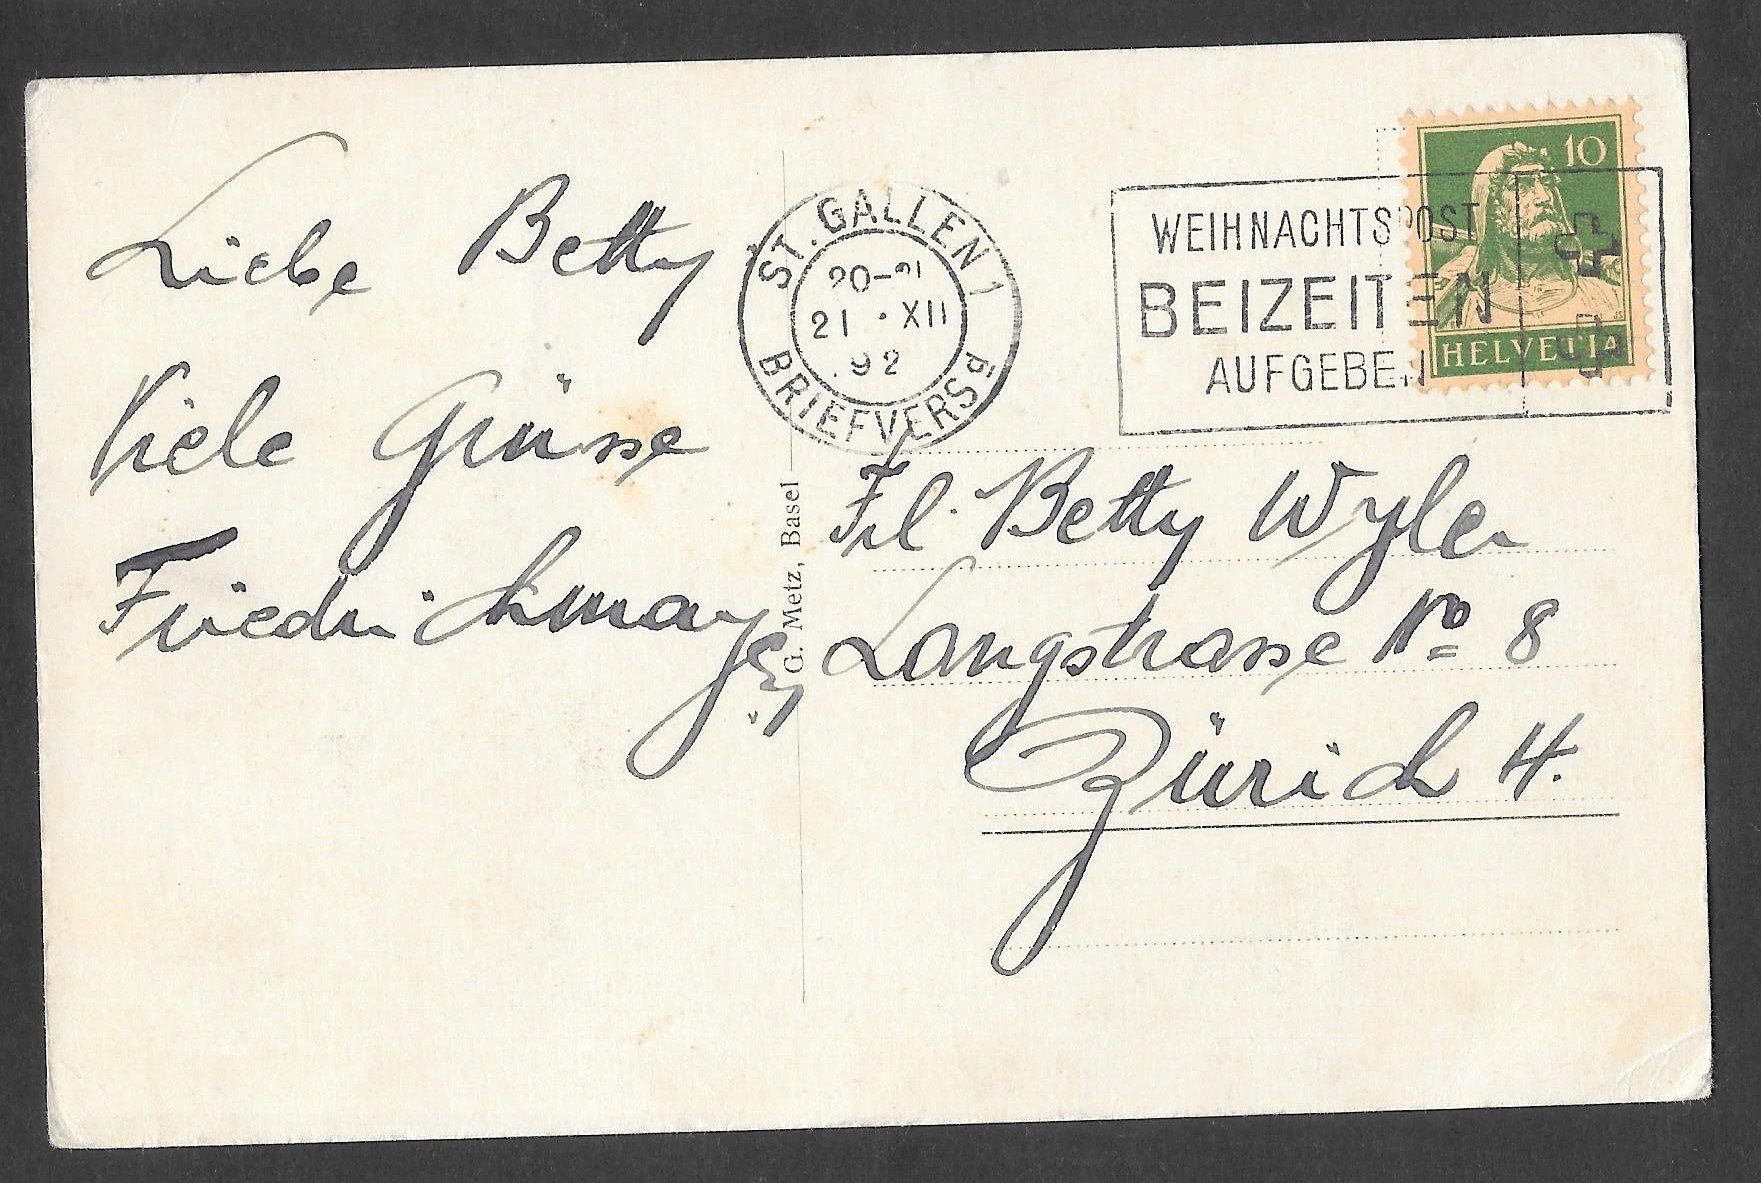 Liebe Betty
Viele Grüsse
Friedrich
G. Metz, Basel
ST. GALLEN 1
20–21
21 · XII
92
BRIEFVERSD
WEIHNACHTSPOST
BEIZEITEN
AUFGEBEN
10
HELVETIA
Frl. Betty Wyler
Langstrasse No 8
Zürich 4.